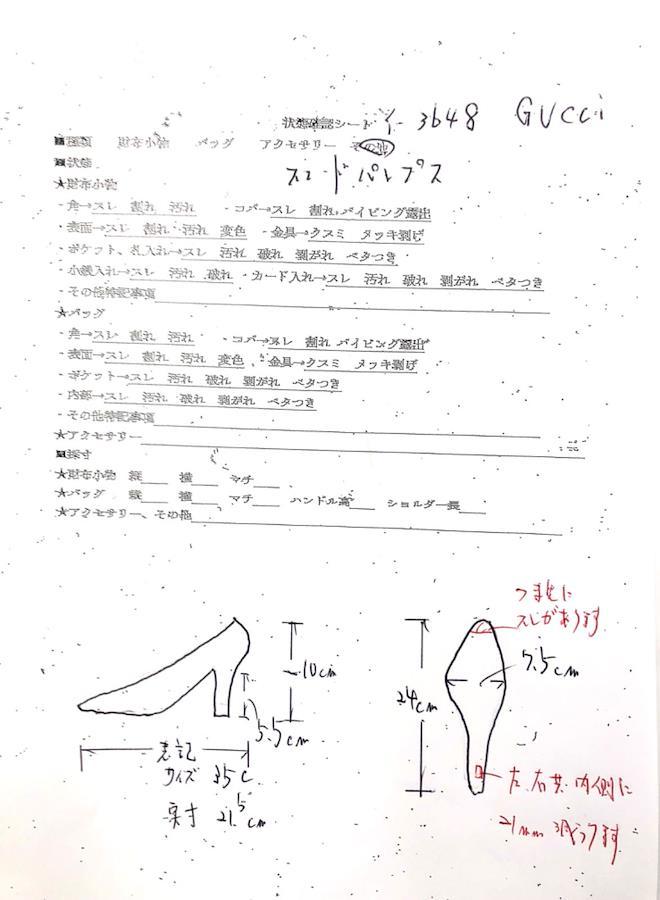 状態確認シート イ-3648 GUCCi
■種類 財布小物 バッグ アクセサリー その他
■状態 スエードパンプス
★財布小物
・角→スレ 割れ 汚れ ・コバ→スレ 割れ パイピング露出
・表面→スレ 割れ 汚れ 変色 ・金具→クスミ メッキ剥げ
・ポケット、札入れ→スレ 汚れ 破れ 剥がれ ベタつき
・小銭入れ→スレ 汚れ 破れ ・カード入れ→スレ 汚れ 破れ 剥がれ ベタつき
・その他特記事項
★バッグ
・角→スレ 割れ 汚れ ・コバ→スレ 割れ パイピング露出
・表面→スレ 割れ 汚れ 変色 ・金具→クスミ メッキ剥げ
・ポケット→スレ 汚れ 破れ 剥がれ ベタつき
・内部→スレ 汚れ 破れ 剥がれ ベタつき
・その他特記事項
★アクセサリー
■採寸
★財布小物 縦 横 マチ
★バッグ 縦 横 マチ ハンドル高 ショルダー長
★アクセサリー、その他
つま先に
スレがあります
10cm
7.5cm
24cm
5.5cm
表記
サイズ 35C
実寸 21.5cm
左右共、内側に
21mm